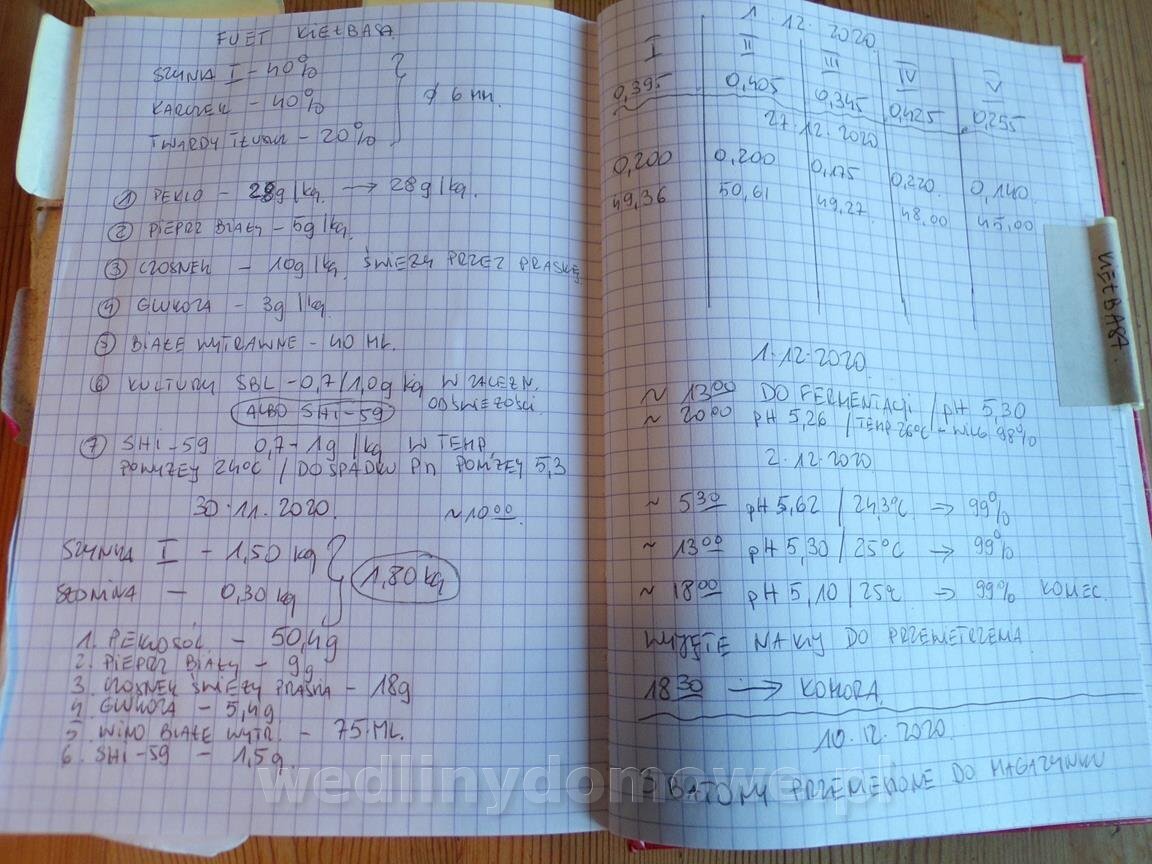 FUET KIEŁBASA
SZYNKA I - 40%
KARCZEK - 40%
TWARDY TŁUSZCZ - 20%
ϕ 6 mm.
① PEKLO - 28g/kg. → 28g/kg.
② PIEPRZ BIAŁY - 5g/kg.
③ CZOSNEK - 10g/kg, ŚWIEŻY PRZEZ PRASKĘ
④ GLUKOZA - 3g/kg
⑤ BIAŁE WYTRAWNE - 40 ML.
⑥ KULTURY SBL - 0,7/1,0g kg W ZALEŻN.
ALBO SHI-59 OD ŚWIEŻOŚCI.
⑦ SHI-59 0,7-1g/kg W TEMP
POWYŻEJ 24°C / DO SPADKU PH PONIŻEJ 5,3
30.11.2020. ~10⁰⁰.
SZYNKA I - 1,50 kg
SŁONINA - 0,30 kg
1,80 kg
1. PEKLOSÓL - 50,4g
2. PIEPRZ BIAŁY - 9g
3. CZOSNEK ŚWIEŻY PRASKA - 18g
4. GLUKOZA - 5,4g
5. WINO BIAŁE WYTR. - 75 ML.
6. SHI-59 - 1,5g
1.12.2020
I II III IV V
0,395 0,405 0,345 0,425 0,255
27.12.2020
0,200 0,200 0,175 0,220. 0,140.
49,36 50,61 49,27. 48,00 45,00
1.12.2020.
~ 13⁰⁰ DO FERMENTACJI / pH 5,30
~ 20⁰⁰ pH 5,26 / TEMP 26°C - WILG 98%
2.12.2020
~ 5³⁰ pH 5,62 / 24,3°C → 99%
~ 13⁰⁰ pH 5,30 / 25°C → 99%
~ 18⁰⁰ pH 5,10 / 25°C → 99% KONIEC.
WYJĘTE NA KIJ DO PRZEWIETRZENIA
18³⁰ → KOMORA.
10.12.2020.
BATONY PRZENIESIONE DO MAGAZYNKU
KIEŁBASA
wedlinydomowe.pl